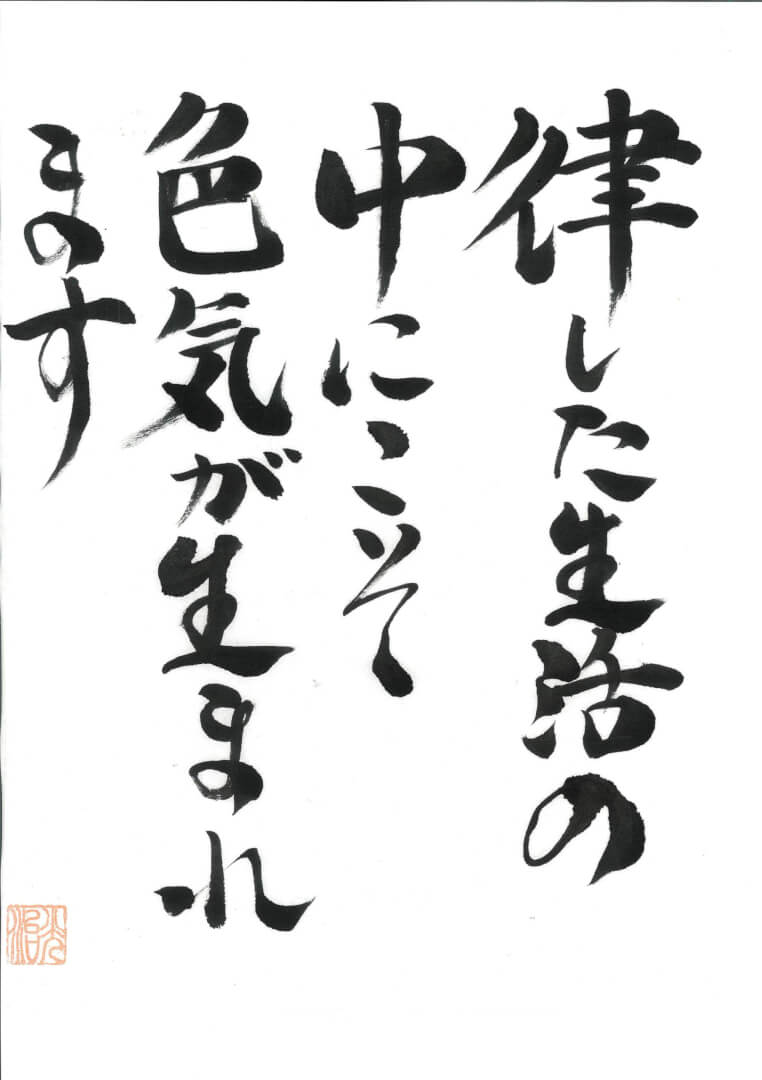 律した生活の
中にこそ
色気が生まれ
ます